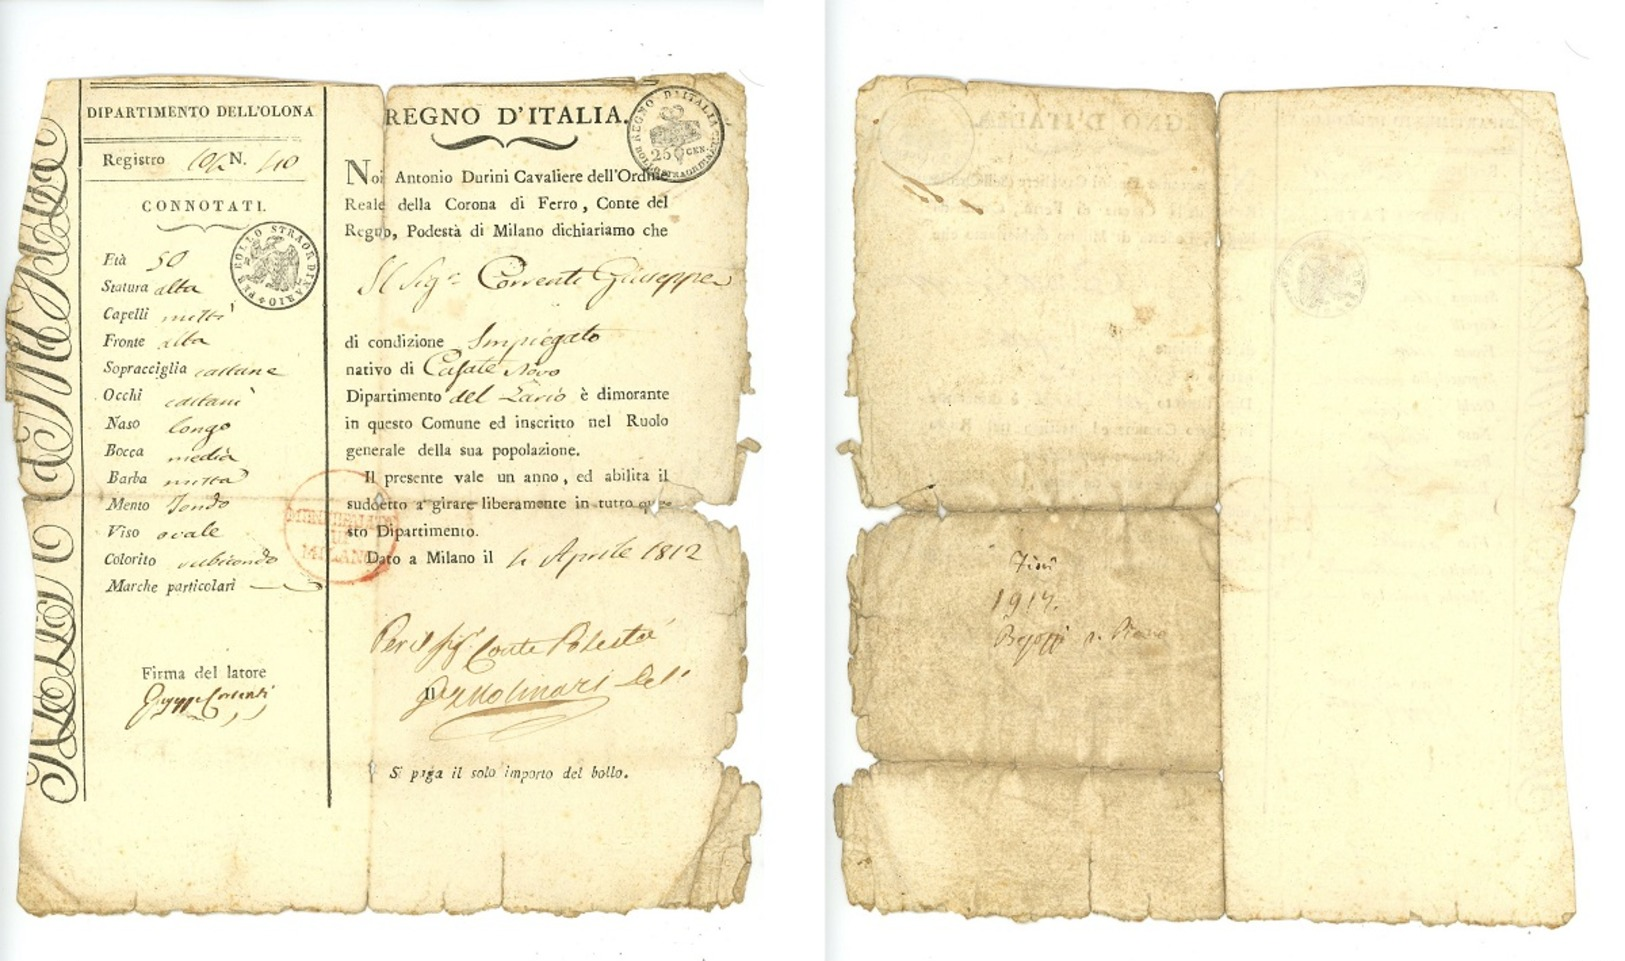 DIPARTIMENTO DELL'OLONA
Registro N. 40
CONNOTATI.
PER BOLLO STRAORDINARIO
Età 50
Statura alta
Capelli misti
Fronte alta
Sopracciglia castane
Occhi castani
Naso longo
Bocca media
Barba mista
Mento Tondo
Viso ovale
Colorito rubicondo
Marche particolari —
Firma del latore
Giuseppe Correnti
REGNO D'ITALIA.
REGNO D'ITALIA
25 CEN.
BOLLO STRAORDINARIO
Noi Antonio Durini Cavaliere dell'Ordine
Reale della Corona di Ferro, Conte del
Regno, Podestà di Milano dichiariamo che
Il Sig.r Correnti Giuseppe
di condizione Impiegato
nativo di Casate Novo
Dipartimento del Lario è dimorante
in questo Comune ed inscritto nel Ruolo
generale della sua popolazione.
Il presente vale un anno, ed abilita il
suddetto a girare liberamente in tutto que-
sto Dipartimento.
Dato a Milano il 4 Aprile 1812
MILANO
Per il Sig.r Conte Podestà
Il Molinari Del.
Si paga il solo importo del bollo.
1917.